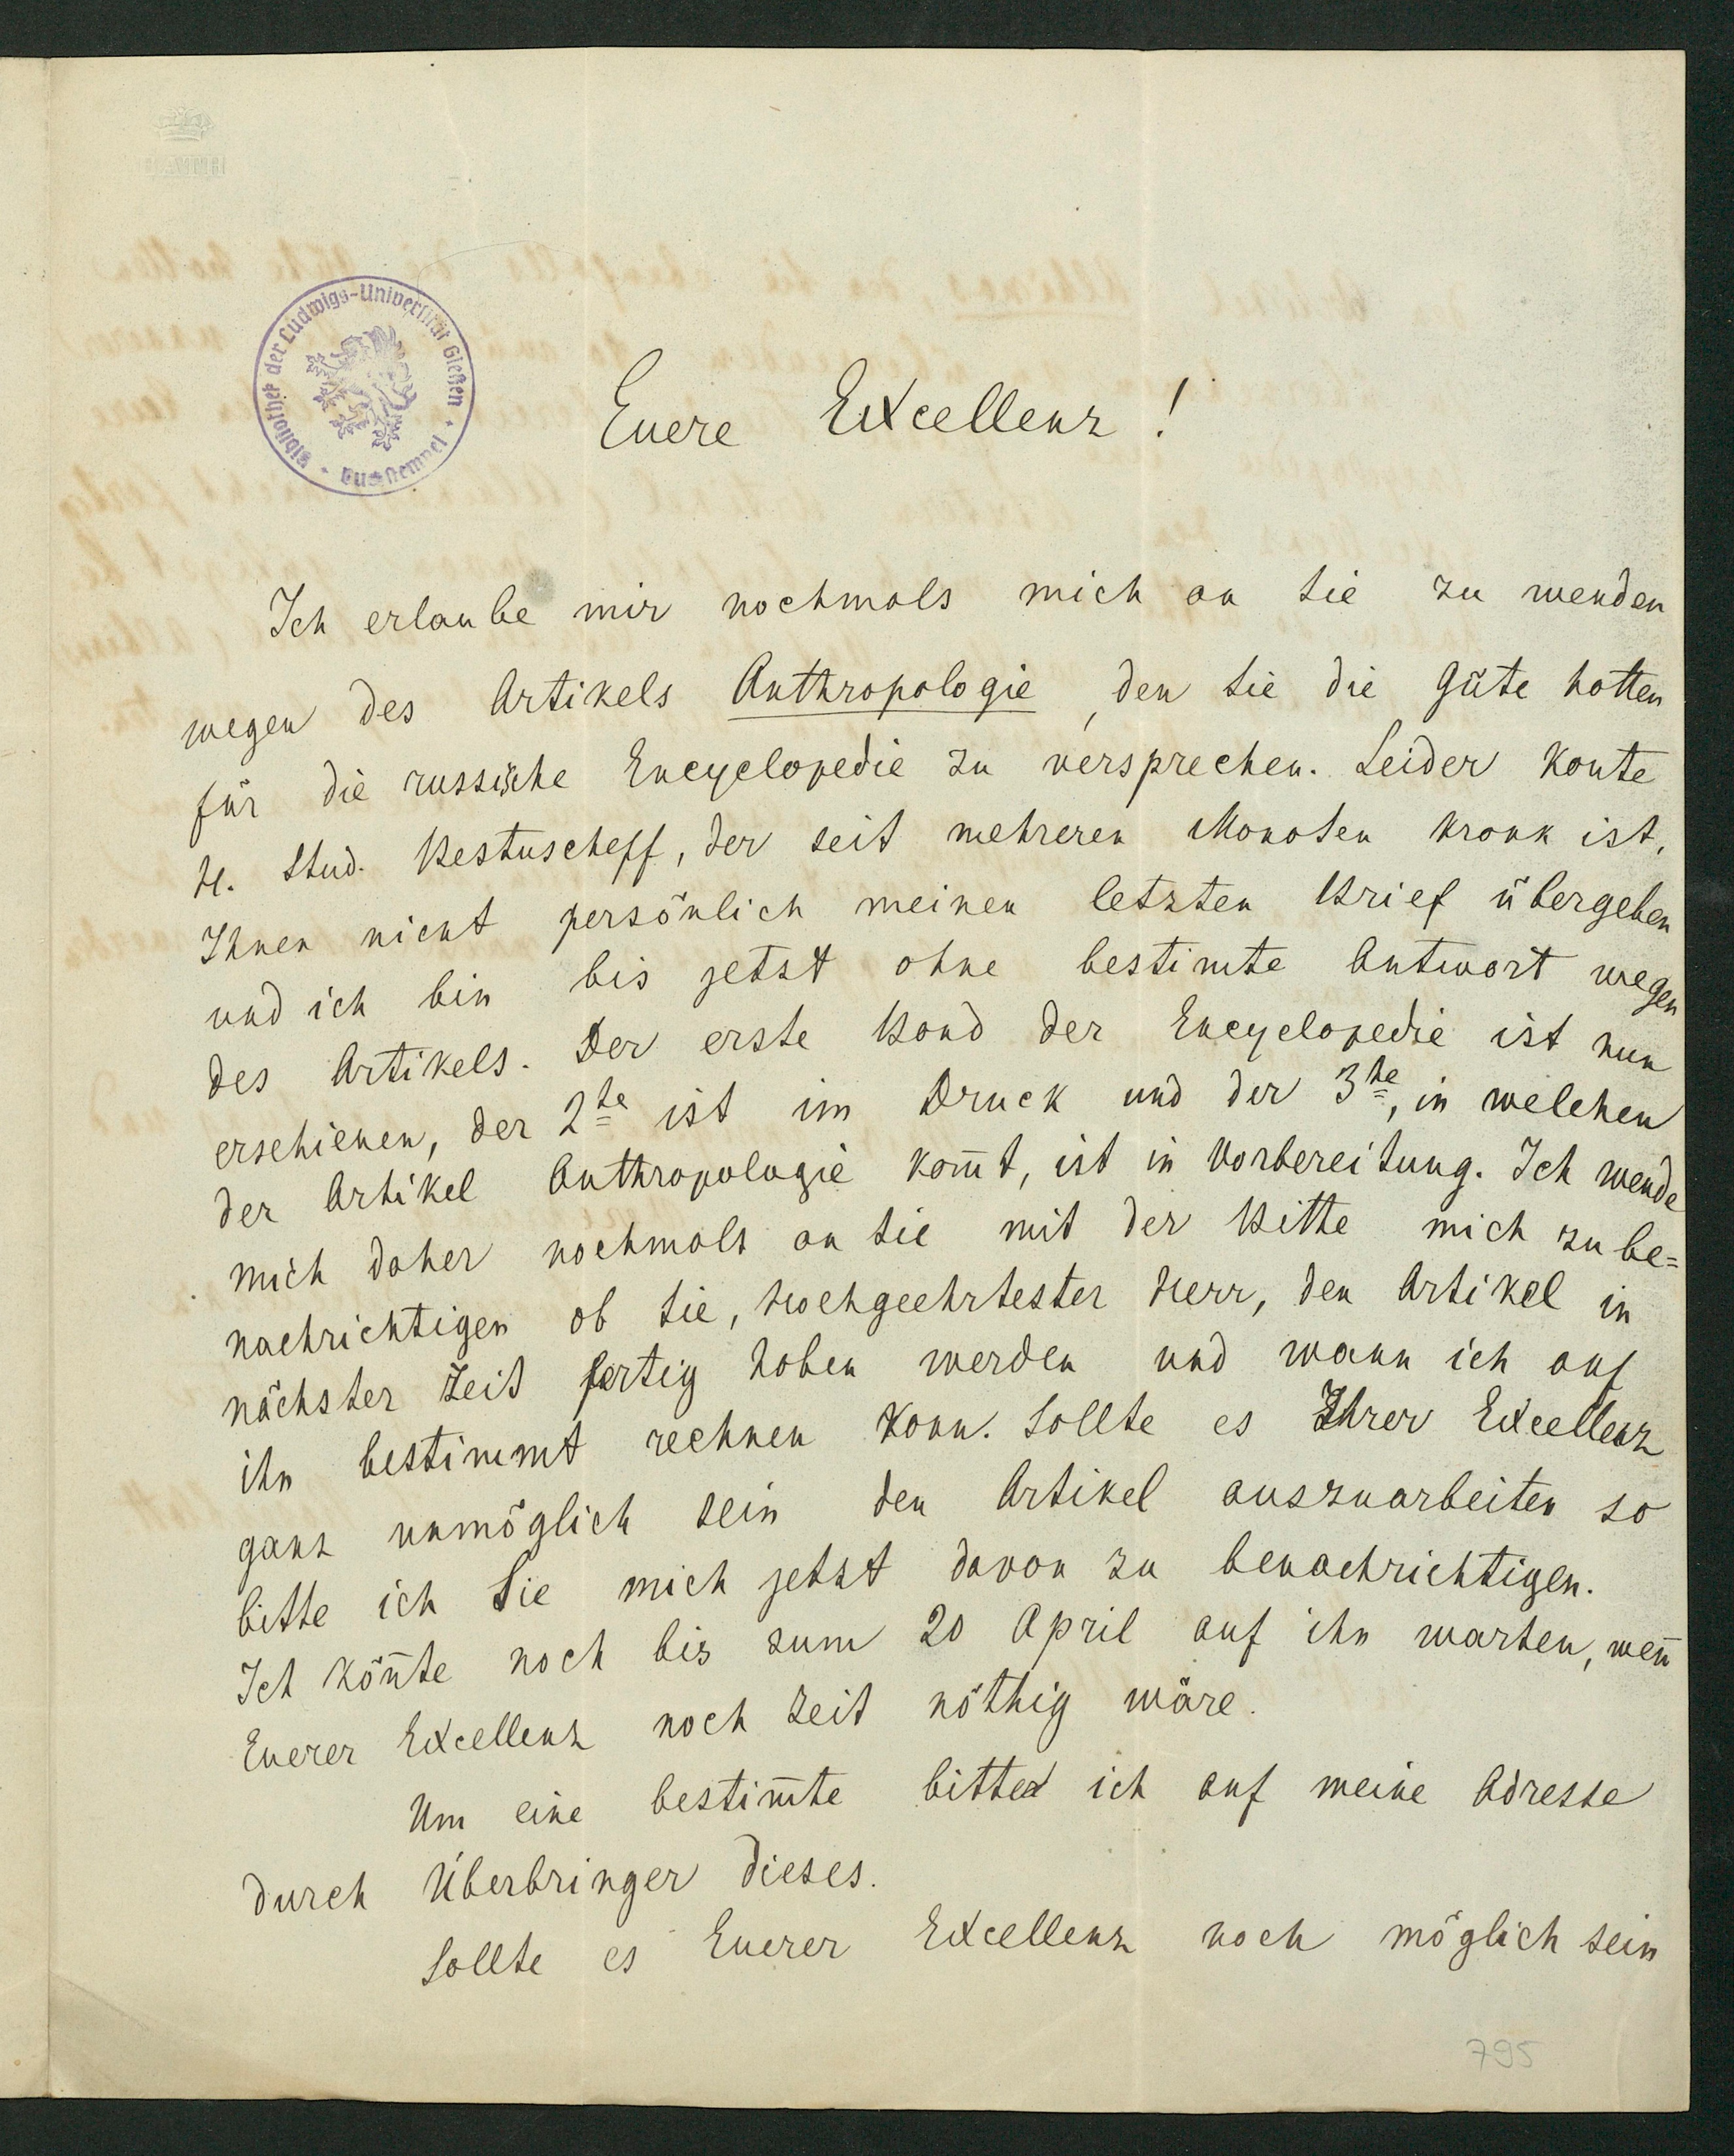 Bibliothek der Ludwigs-Universität Gießen
Tauschstempel
Euere Excellenz!
Ich erlaube mir nochmals mich an Sie zu wenden
wegen des Artikels Anthropologie, den Sie die Güte hatten
für die russische Encyclopedie zu versprechen. Leider konte
H. Stud. Bestuscheff, der seit mehreren Monaten krank ist,
Ihnen nicht persönlich meinen letzten Brief übergeben
und ich bin bis jetzt ohne bestimte Antwort wegen
des Artikels. Der erste Band der Encyclopedie ist nun
erschienen, der 2te ist im Druck und der 3te, in welchen
der Artikel Anthropologie kom̄t, ist in Vorbereitung. Ich wende
mich daher nochmals an Sie mit der Bitte mich zu be=
nachrichtigen ob Sie, Hochgeehrtester Herr, den Artikel in
nächster Zeit fertig haben werden und wann ich auf
ihn bestimmt rechnen kann. Sollte es Ihrer Excellenz
ganz unmöglich sein den Artikel auszuarbeiten so
bitte ich Sie mich jetzt davon zu benachrichtigen.
Ich kön̄te noch bis zum 20 April auf ihn warten, wen̄
Euerer Excellenz noch Zeit nöthig wäre.
Um eine bestim̄te bitte ich auf meine Adresse
durch Überbringer dieses.
Sollte es Euerer Excellenz noch möglich sein
795